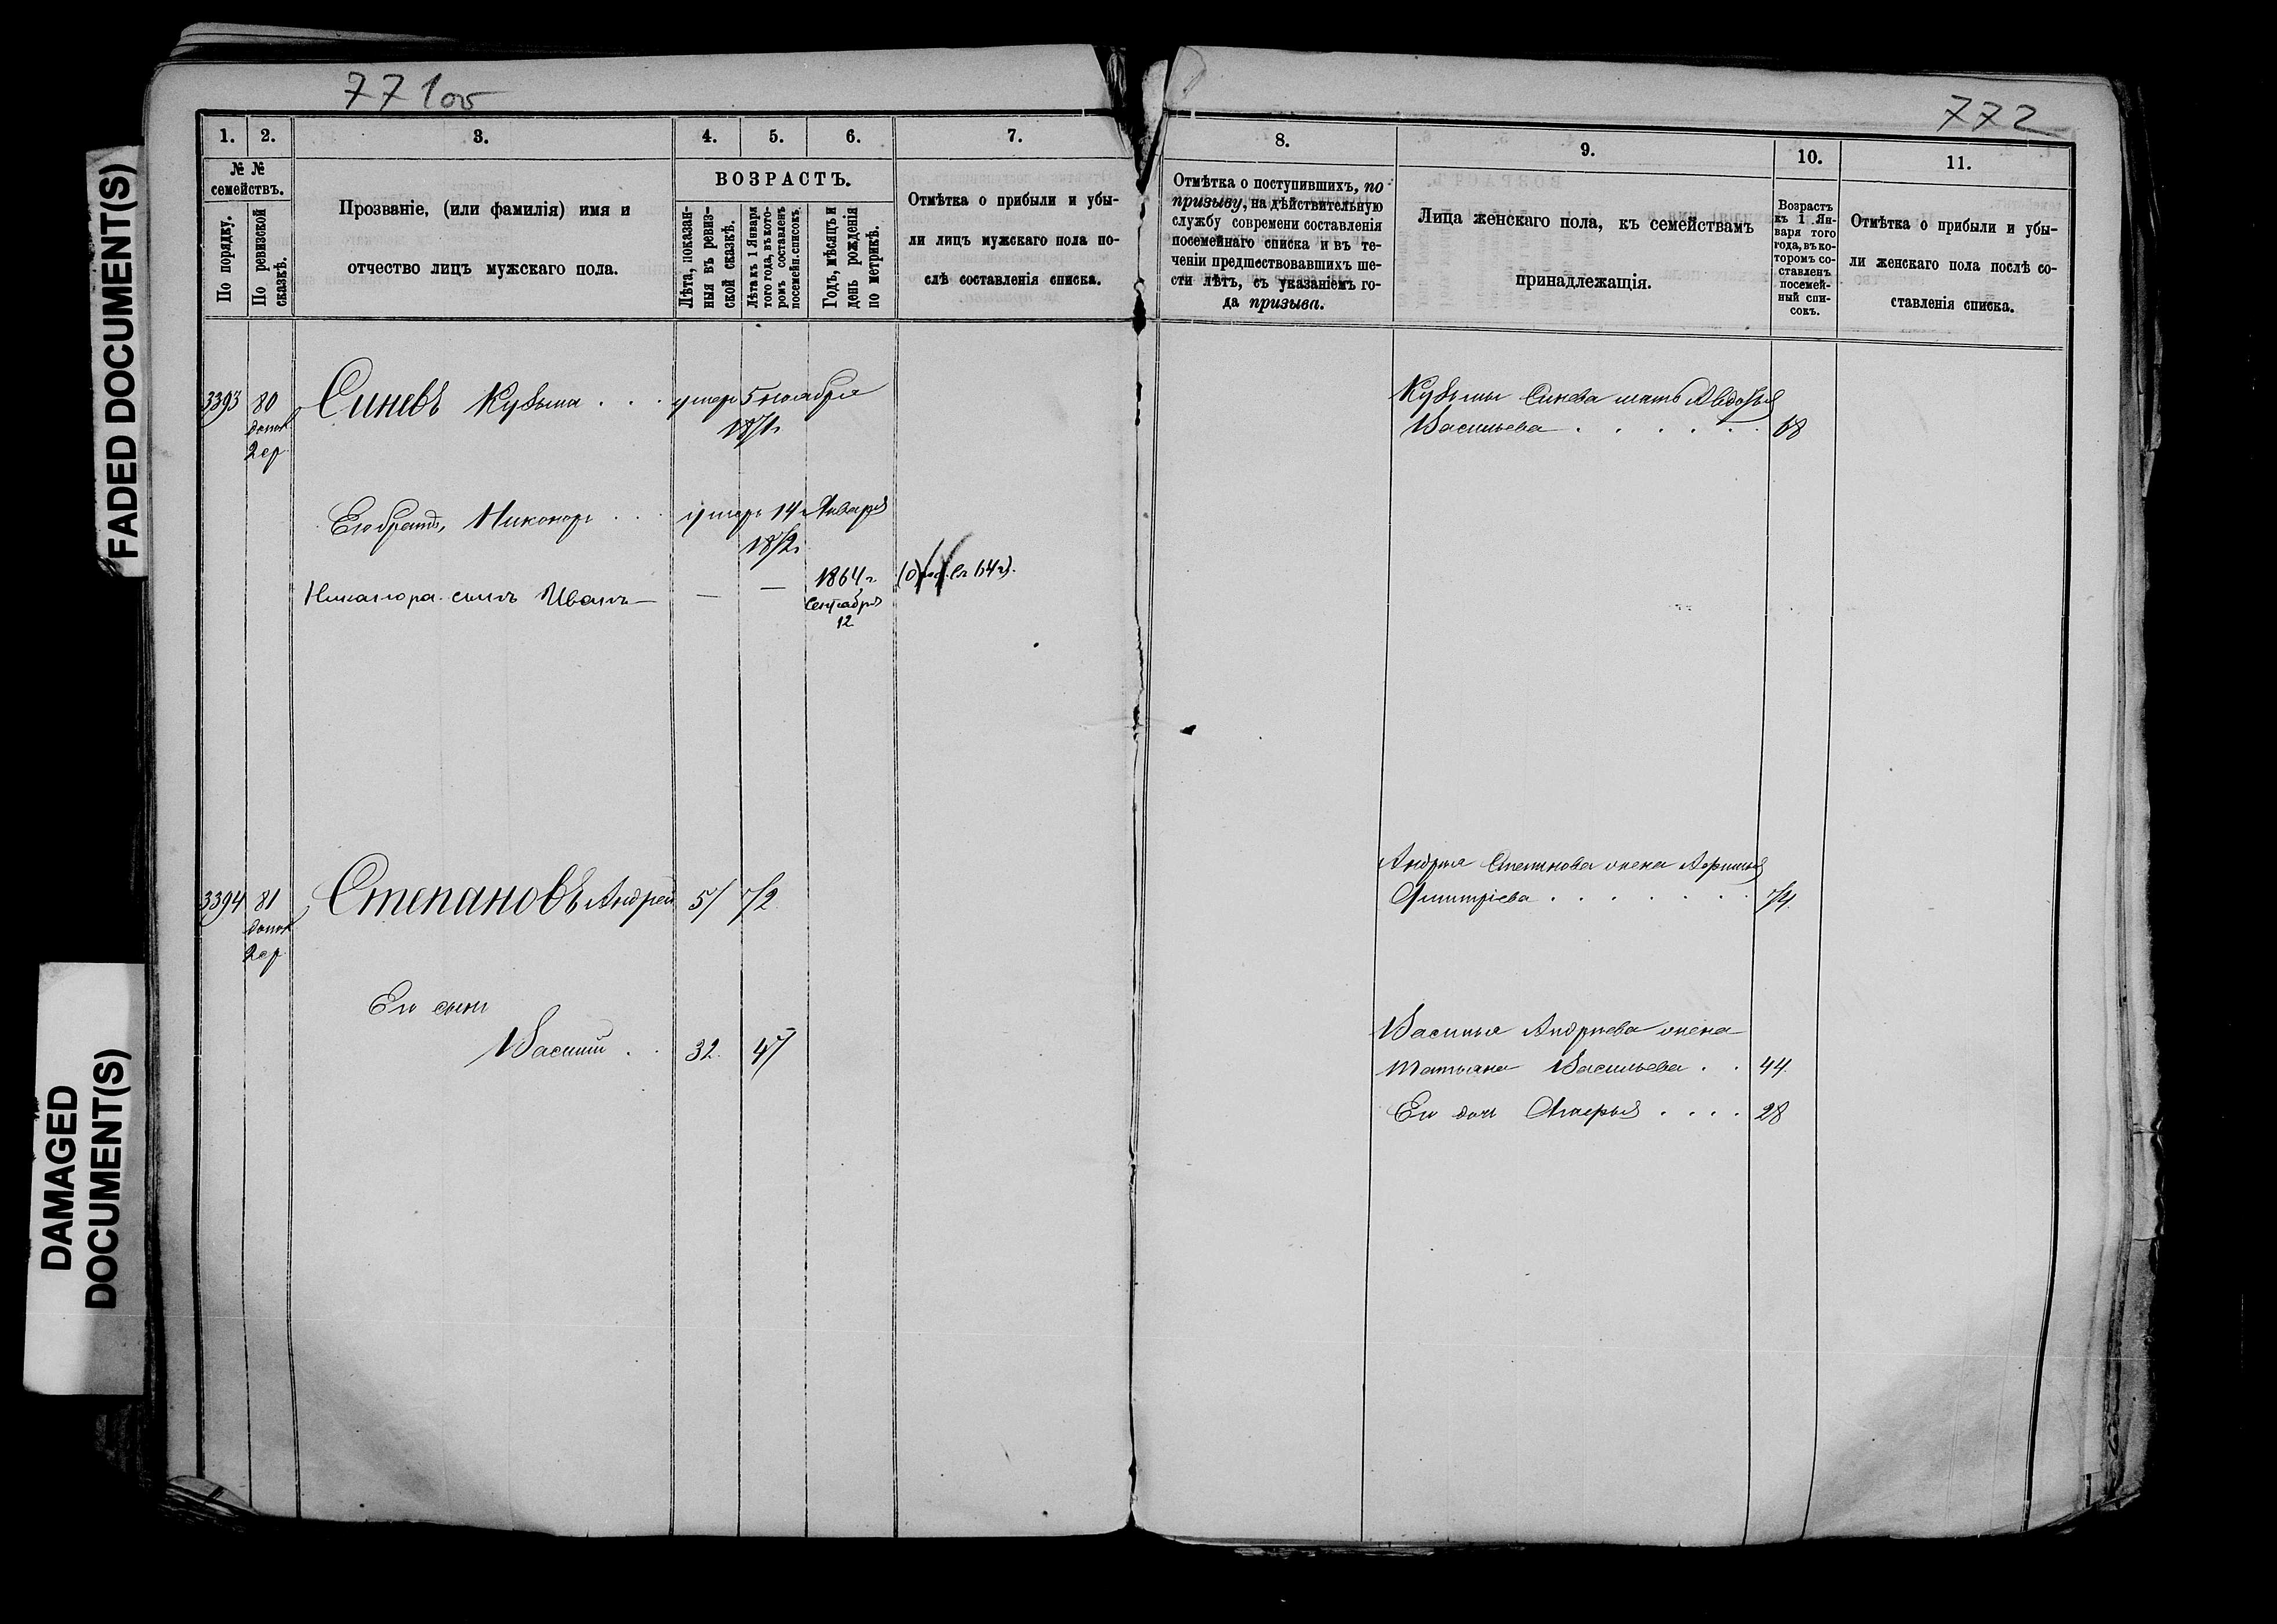 771об
772
FADED DOCUMENT(S)
DAMAGED
DOCUMENT(S)
1.
2.
3.
4.
5.
6.
7.
№ №
семействъ.
По порядку.
По ревизской
сказкѣ.
Прозваніе, (или фамилія) имя и
отчество лицъ мужскаго пола.
ВОЗРАСТЪ.
Лѣта, показан-
ныя въ ревиз-
ской сказкѣ.
Лѣта къ 1 Января
того года, въ кото-
ромъ составленъ
посемейн. списокъ.
Годъ, мѣсяцъ и
день рожденія
по метрикѣ.
Отмѣтка о прибыли и убы-
ли лицъ мужскаго пола по-
слѣ составленія списка.
8.
9.
10.
11.
Отмѣтка о поступившихъ, по
призыву, на дѣйствительную
службу современи составленія
посемейнаго списка и въ те-
ченіи предшествовавшихъ ше-
сти лѣтъ, съ указаніемъ го-
да призыва.
Лица женскаго пола, къ семействамъ
принадлежащія.
Возрастъ
къ 1 Ян-
варя того
года, въ ко-
торомъ со-
ставленъ
посемей-
ный спи-
сокъ.
Отмѣтка о прибыли и убы-
ли женскаго пола послѣ со-
ставленія списка.
3393 80 Синевъ Кузьма . . . умеръ 5 ноября
допол 1871г
2 ср
Его братъ, Никоноръ . . . умеръ 14 Января
1872г
Никанора сынъ Иванъ — — — 1864 г.
Сентября
12
Кузьмы Синева мать Авдотья
Васильева . . . . . . 68
3394 81 Степановъ Андрей 57 72
допол
2 ср
Его сынъ
Василій . . 32. 47
Андрея Степанова жена
Дмитріева . . . . . . . 74
Василья Андреева жена
Татьяна Васильева . . 44.
Его дочь . . . . 28